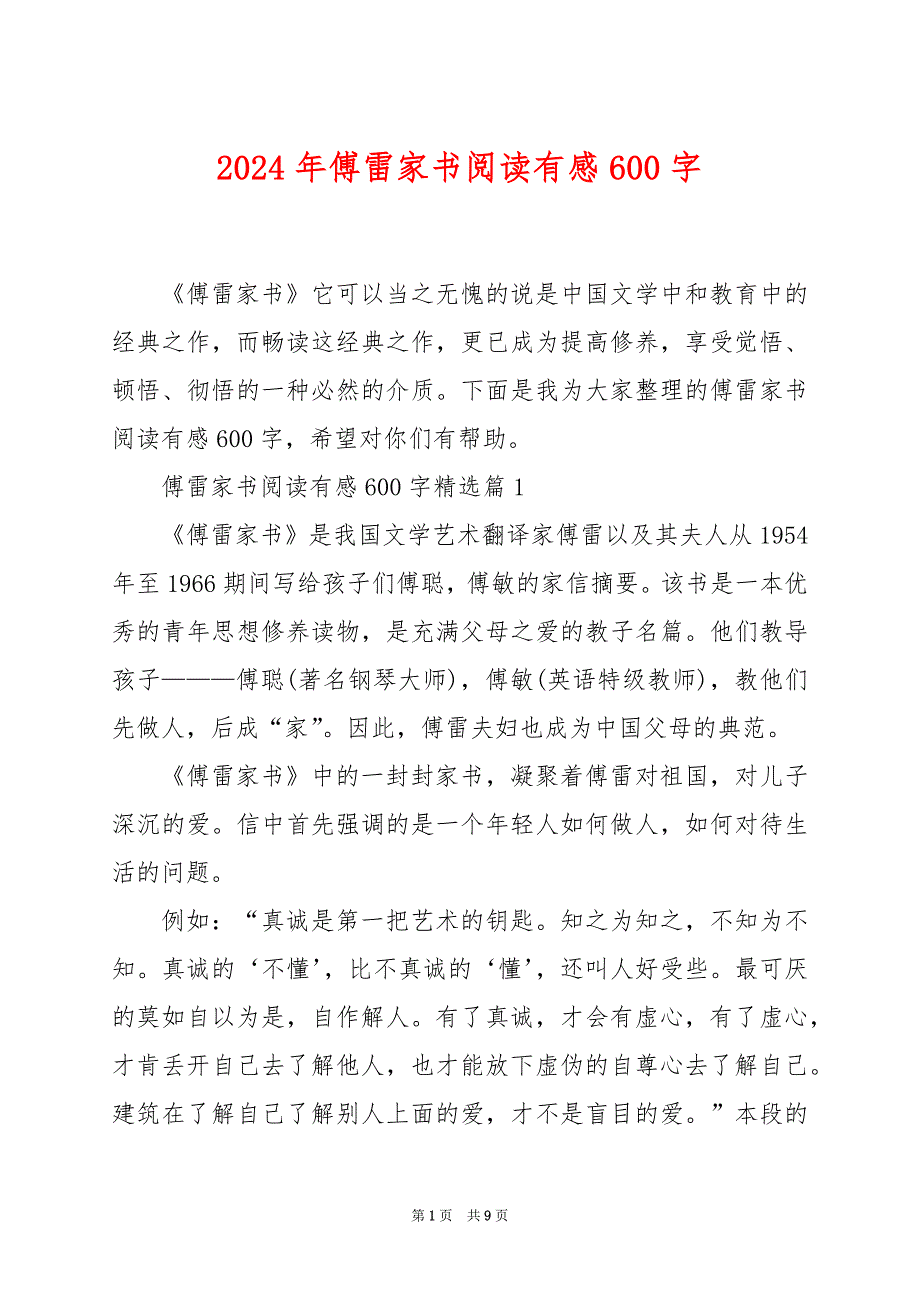 2024年傅雷家书阅读有感600字
《傅雷家书》它可以当之无愧的说是中国文学中和教育中的
经典之作，而畅读这经典之作，更已成为提高修养，享受觉悟、
顿悟、彻悟的一种必然的介质。下面是我为大家整理的傅雷家书
阅读有感600字，希望对你们有帮助。
傅雷家书阅读有感600字精选篇1
《傅雷家书》是我国文学艺术翻译家傅雷以及其夫人从1954
年至1966期间写给孩子们傅聪，傅敏的家信摘要。该书是一本优
秀的青年思想修养读物，是充满父母之爱的教子名篇。他们教导
孩子———傅聪(著名钢琴大师)，傅敏(英语特级教师)，教他们
先做人，后成“家”。因此，傅雷夫妇也成为中国父母的典范。
《傅雷家书》中的一封封家书，凝聚着傅雷对祖国，对儿子
深沉的爱。信中首先强调的是一个年轻人如何做人，如何对待生
活的问题。
例如：“真诚是第一把艺术的钥匙。知之为知之，不知为不
知。真诚的‘不懂’，比不真诚的‘懂’，还叫人好受些。最可厌
的莫如自以为是，自作解人。有了真诚，才会有虚心，有了虚心，
才肯丢开自己去了解他人，也才能放下虚伪的自尊心去了解自己。
建筑在了解自己了解别人上面的爱，才不是盲目的爱。”本段的
第1页 共9页